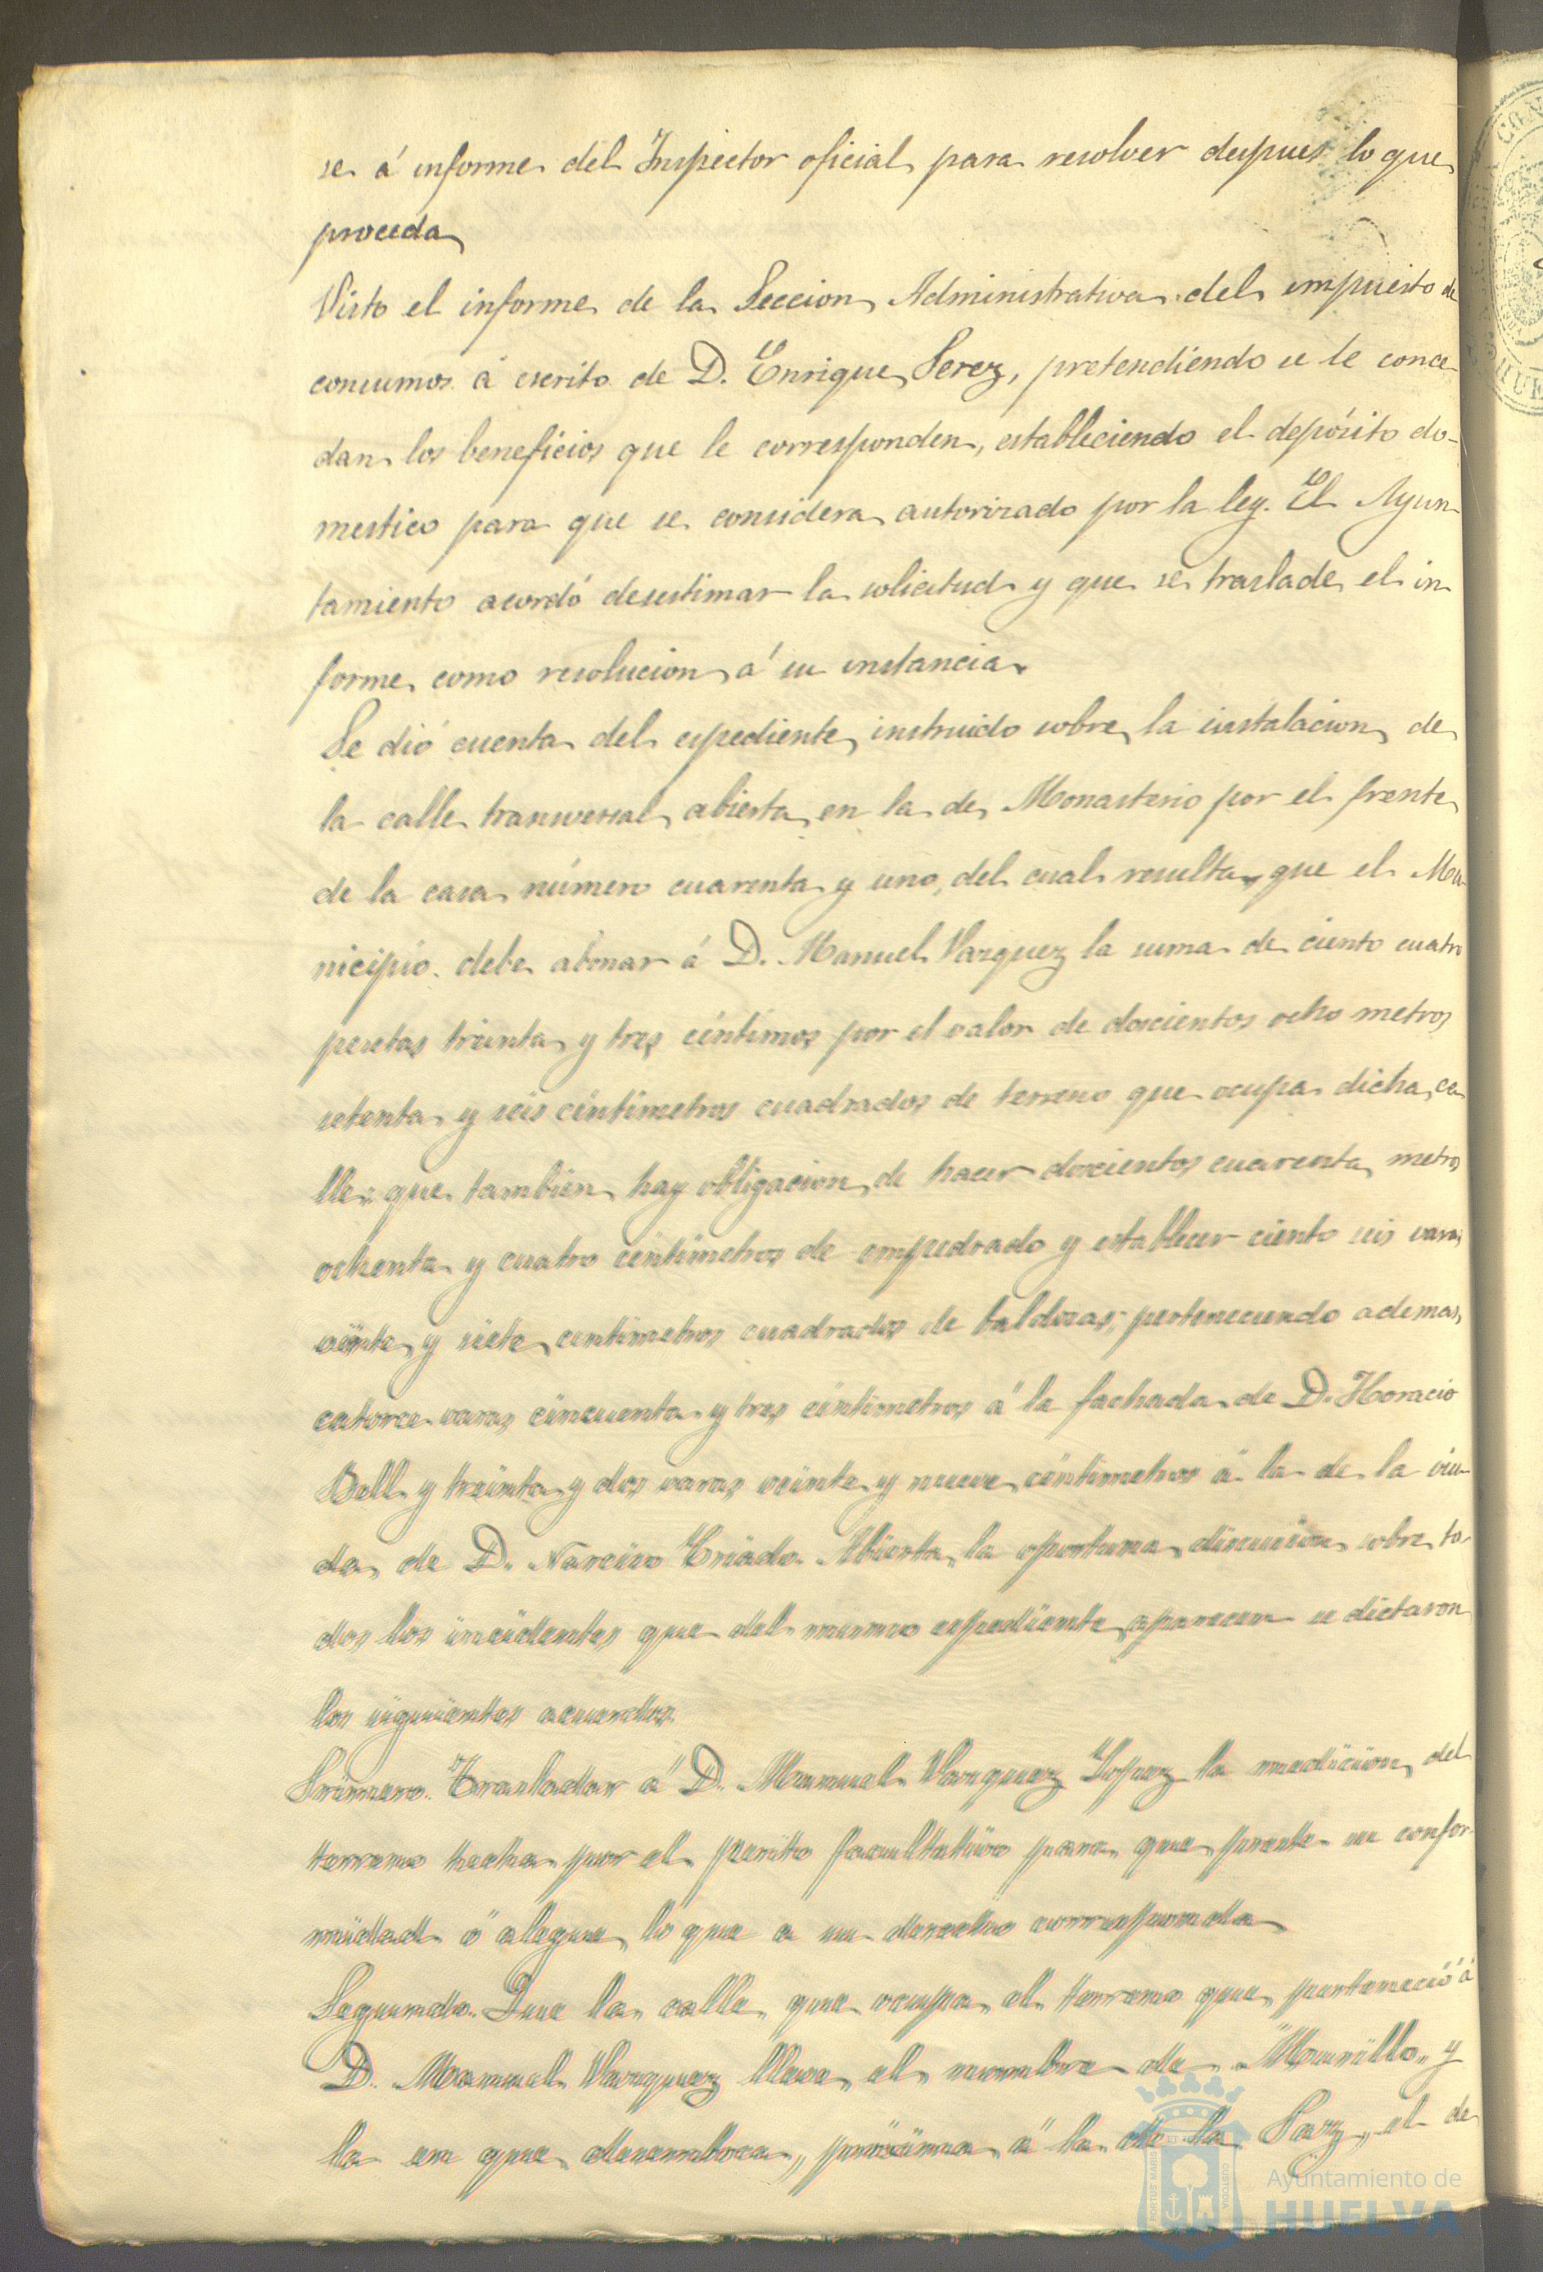 se á informe del Inspector oficial para resolver despues lo que
proceda
Visto el informe de la Seccion Administrativa del impuesto de
consumos á escrito de D. Enrique Perez, pretendiendo se le conce-
dan los beneficios que le corresponden, estableciendo el depósito do-
mestico para que se considera autorizado por la ley. El Ayun-
tamiento acordó desestimar la solicitud y que se traslade el in-
forme como resolucion á su instancia.
Se dió cuenta del espediente instruido sobre la instalacion de
la calle tranversal abierta en la de Monasterio por el frente
de la casa número cuarenta y uno, del cual resulta que el Mu-
nicipio debe abonar á D. Manuel Vazquez la suma de ciento cuatro
pesetas treinta y tres céntimos por el valor de doscientos ocho metros
setenta y seis céntimetros cuadrados de terreno que ocupa dicha ca-
lle: que tambien hay obligacion de hacer doscientos cuarenta metros
ochenta y cuatro centímetros de empedrado y establecer ciento seis varas
veinte y siete centimetros cuadrados de baldosas; perteneciendo ademas
catorce varas cincuenta y tres céntimetros á la fachada de D. Horacio
Bell y treinta y dos varas veinte y nueve céntimetros á la de la viu-
da de D. Narciso Criado. Abierta la oportuna discusion sobre to-
dos los incidentes que del mismo espediente aparecen se dictaron
los siguientes acuerdos.
Primero. Trasladar á D. Manuel Vazquez Lopez la medicion del
terreno hecha por el perito facultativo para que preste su confor-
midad ó alegue lo que a su derecho corresponda
Segundo. Que la calle que ocupa el terreno que perteneció á
D. Manuel Vazquez lleve el nombre de "Murillo" y
la en que desemboca, próxima á la de la Paz, el de
Ayuntamiento de
HUELVA
PORTUS MARIS
CUSTODIA